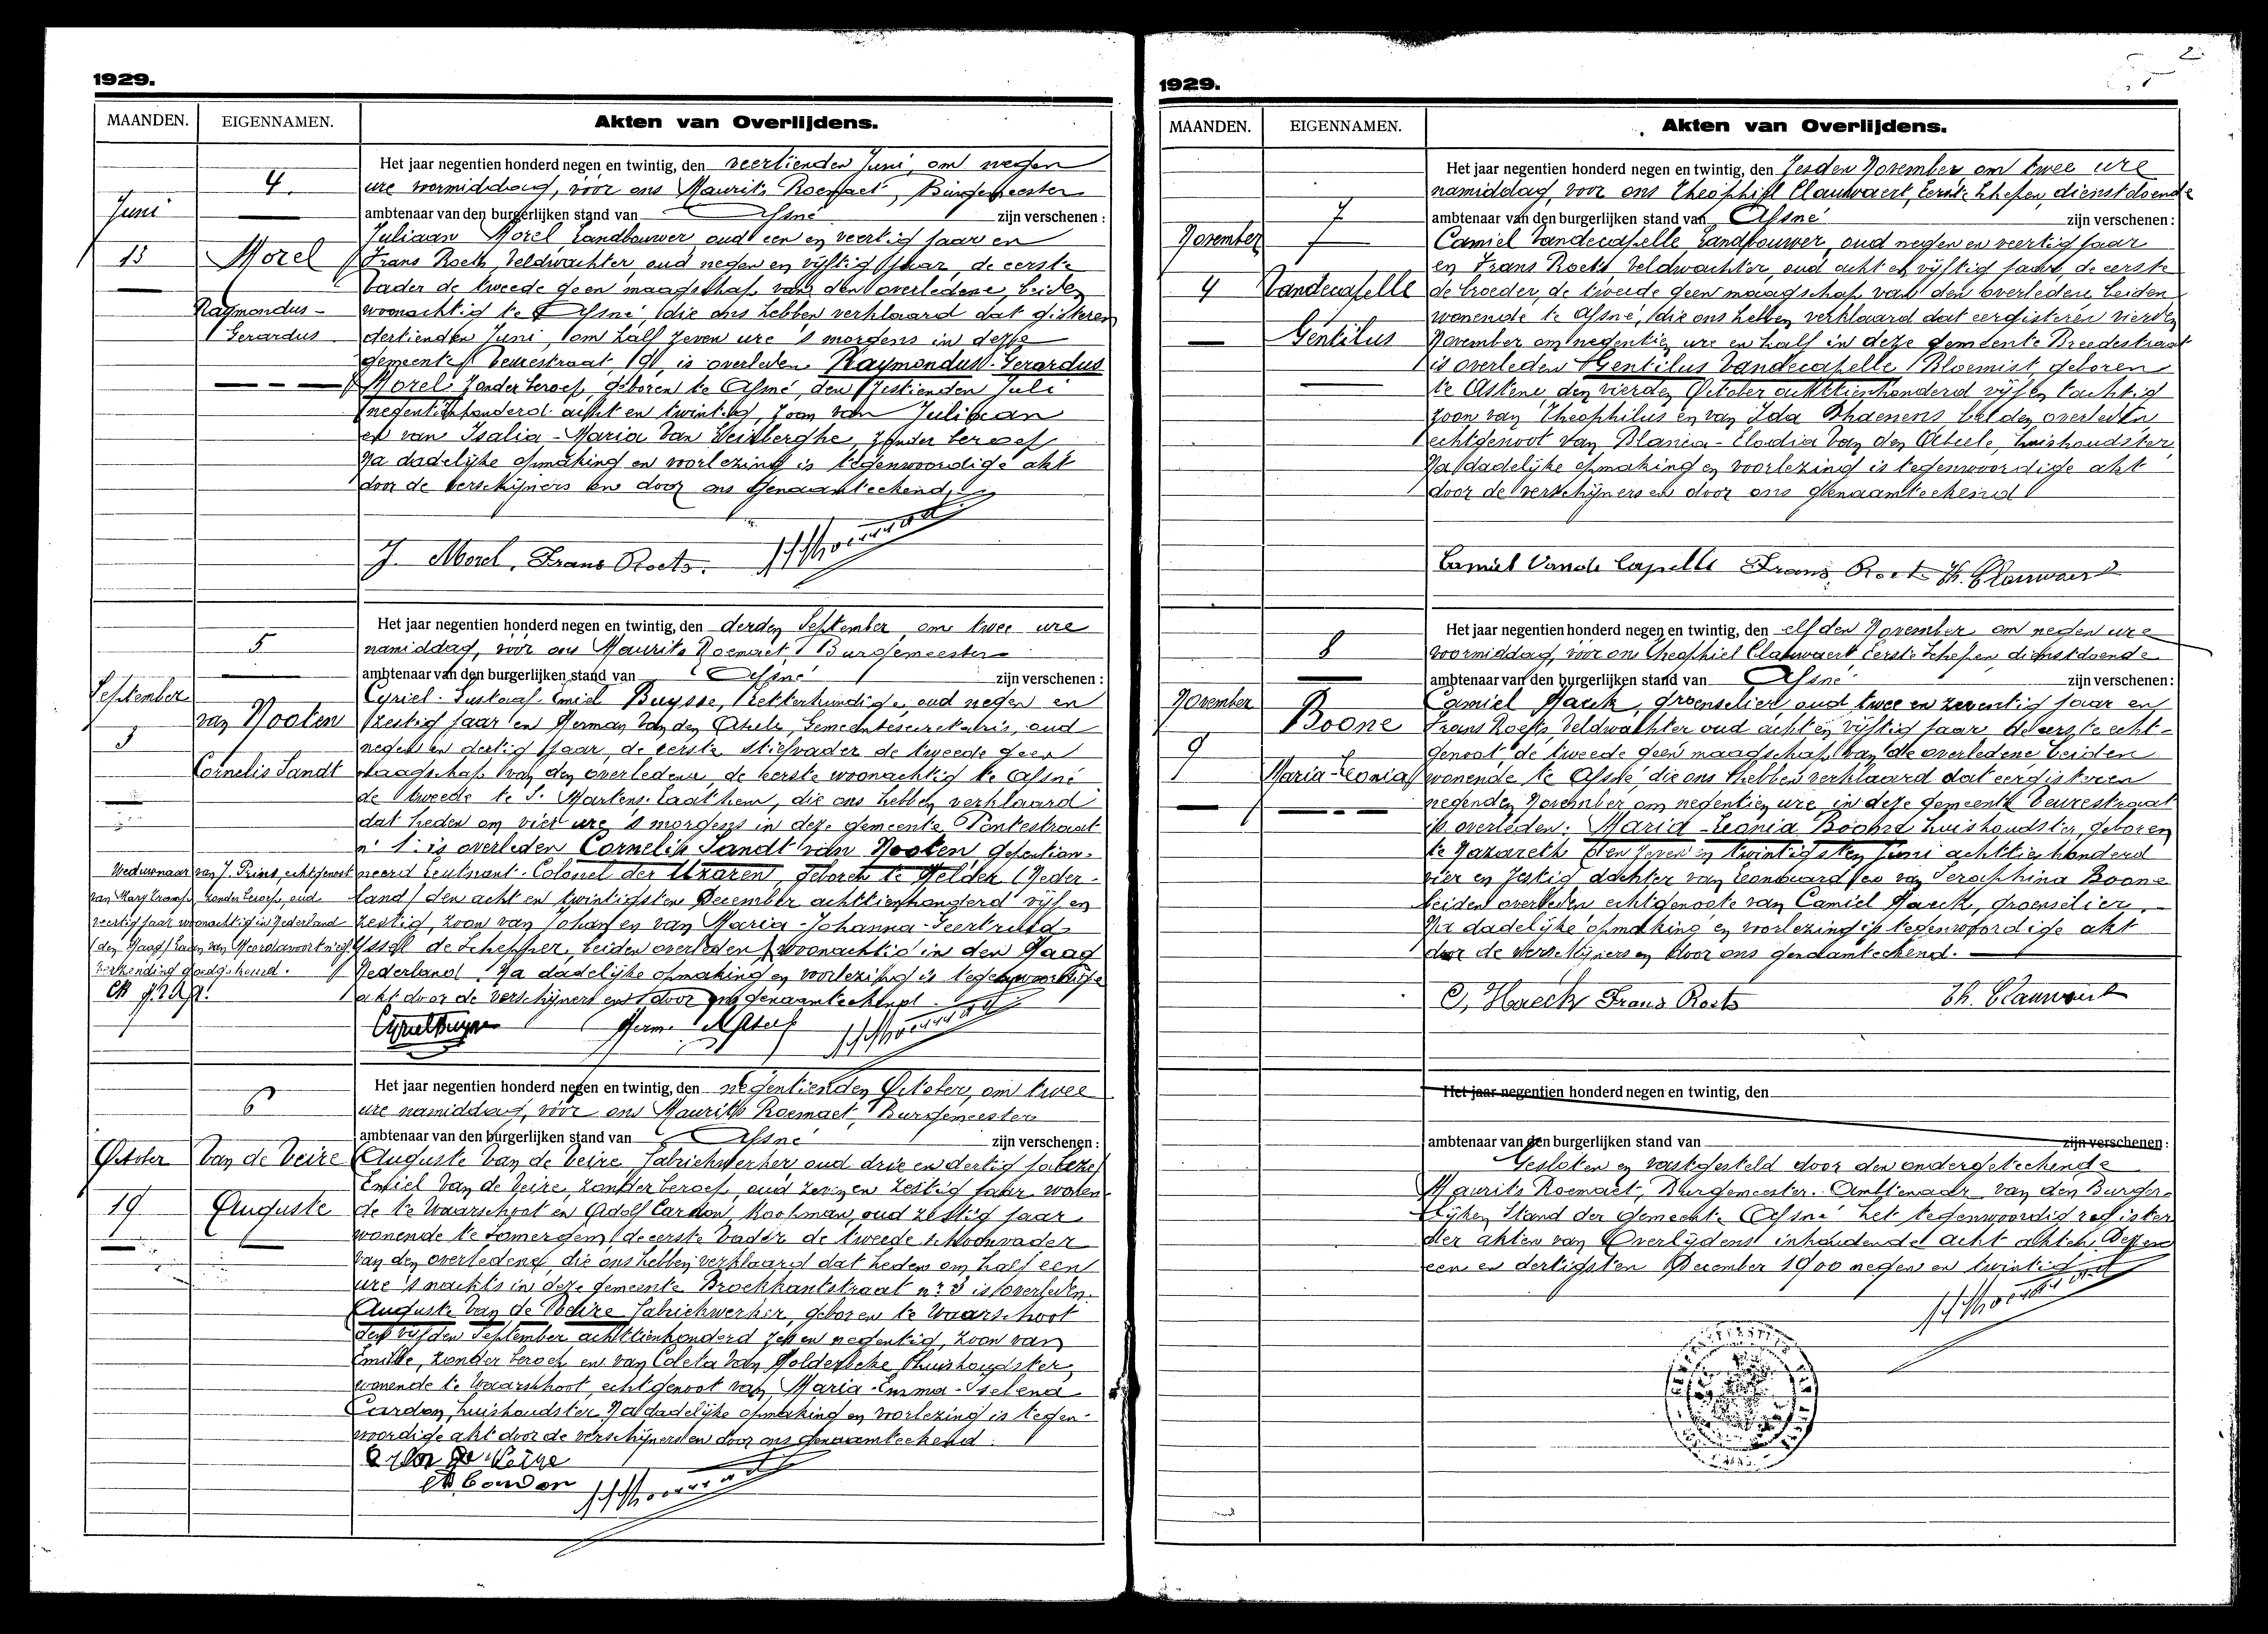 1929.
MAANDEN. EIGENNAMEN. Akten van Overlijdens.
4.
Juni
13
Morel
Raymondus-
Gerardus
Het jaar negentien honderd negen en twintig, den veertienden Juni, om negen
ure voormiddag, vóór ons Maurits Roemaet, Burgemeester
ambtenaar van den burgerlijken stand van Afsné zijn verschenen:
Juliaan Morel, Landbouwer, oud een en veertig jaar en
Frans Roets, Veldwachter, oud negen en vijftig jaar, de eerste
vader de tweede geen maagschap van den overledene, beiden
woonachtig te Afsné, die ons hebben verklaard dat gisteren
dertienden Juni, om half zeven ure 's morgens in deze
gemeente, Veurestraat, 19, is overleden Raymondus-Gerardus
Morel zonder beroep, geboren te Afsné, den zestienden Juli
negentienhonderd acht en twintig, zoon van Juliaan
en van Isalia-Maria Van Weinberghe, zonder beroep
Na dadelijke opmaking en voorlezing is tegenwoordige akt
door de verschijners en door ons genaamteekend.
J. Morel, Frans Roets.
5
September
3
van Nooten
Cornelis Sandt
Het jaar negentien honderd negen en twintig, den derden September, om twee ure
namiddag, vóór ons Maurits Roemaet, Burgemeester
ambtenaar van den burgerlijken stand van Afsné zijn verschenen:
Cyriel-Gustaaf-Emiel Buysse, Letterkundige, oud negen en
zestig jaar en Herman Van den Abeele, Gemeentesecretaris, oud
negen en dertig jaar, de eerste stiefvader de tweede geen
maagschap van den overledene, de eerste woonachtig te Afsné
de tweede te S. Martens-Laathem, die ons hebben verklaard
dat heden om vier ure 's morgens in deze gemeente, Pontestraat
n° 1 is overleden Cornelis Sandt van Nooten, gepension-
neerd Leutnant-Colonel der Uzaren geboren te Helder (Neder-
land) den acht en twintigsten December achttienhonderd vijf en
zestig, zoon van Johan en van Maria-Johanna-Geertruid-
Yssel de Schepper, beiden overleden, woonachtig in den Haag
Nederland. Na dadelijke opmaking en voorlezing is tegenwoordige
akt door de verschijners en door ons genaamteekend.
Weduwnaar van J. Prins, echtgenoot
van Mary Tromp, zonder beroep, oud
veertig jaar woonachtig in Nederland
(den Haag)
verzending goedgekeurd.
Cyriel Buysse Herm. Abeele
6
October
19
Van de Veire
Auguste
Het jaar negentien honderd negen en twintig, den negentienden October, om twee
ure namiddag, vóór ons Maurits Roemaet, Burgemeester
ambtenaar van den burgerlijken stand van Afsné zijn verschenen:
Auguste Van de Veire, fabriekwerker oud drie en dertig jaar
Emiel Van de Veire, zonder beroep, oud zeven en zestig jaar wonen-
de te Waarschoot en Adolf Cardon, Koolman, oud zestig jaar
wonende te Somergem, de eerste vader de tweede schoonvader
van den overledene, die ons hebben verklaard dat heden om half een
ure 's nachts in deze gemeente Broekkantstraat n° 3 is overleden
Auguste Van de Veire fabriekwerker, geboren te Waarschoot
den vijfden September achttienhonderd zes en negentig, zoon van
Emille, zonder beroep en van Coleta Van Holderbeke, huishoudster,
wonende te Waarschoot, echtgenoot van Maria-Emma-Selena
Cardon, huishoudster. Na dadelijke opmaking en voorlezing is tegen-
woordige akt door de verschijners en door ons genaamteekend.
E Van De Veire
Ad. Cardon
1929.
2
MAANDEN. EIGENNAMEN. Akten van Overlijdens.
7
November
4
Vandecapelle
Gentilus
Het jaar negentien honderd negen en twintig, den zesden November, om twee ure
namiddag, voor ons Theophiel Clauwaert, Eerste Schepen, dienstdoende
ambtenaar van den burgerlijken stand van Afsné zijn verschenen:
Camiel Vandecapelle Landbouwer, oud negen en veertig jaar
en Frans Roets Veldwachter, oud acht en vijftig jaar, de eerste
de broeder, de tweede geen maagschap van den overledene, beiden
wonende te Afsné, die ons hebben verklaard dat eergisteren vierden
November om negentien ure en half in deze gemeente Breedestraat
is overleden Gentilus Vandecapelle, Bloemist, geboren
te Astene, den vierden October achttienhonderd vijf en tachtig
zoon van Theophilus en van Ida Dhaenens beiden overleden
echtgenoot van Blanca-Elodia Van den Abeele, huishoudster
Na dadelijke opmaking en voorlezing is tegenwoordige akt
door de verschijners en door ons genaamteekend
Camiel Vande Capelle Frans Roets Th. Clauwaert
8
November
9
Boone
Maria-Leonia
Het jaar negentien honderd negen en twintig, den elfden November, om negen ure
voormiddag, vóór ons Theophiel Clauwaert, Eerste Schepen, dienstdoende
ambtenaar van den burgerlijken stand van Afsné zijn verschenen:
Camiel Haeck, groenselier, oud twee en zeventig jaar en
Frans Roets, Veldwachter oud acht en vijftig jaar, de eerste echt-
genoot de tweede geen maagschap van de overledene beiden
wonende te Afsné, die ons hebben verklaard dat eergisteren
negenden November om negentien ure, in deze gemeente Veurestraat
is overleden: Maria-Leonia Boone huishoudster, geboren
te Nazareth den zeven en twintigsten Juni achttienhonderd
vier en zestig dochter van Leonuard en van Seraphina Boone
beiden overleden echtgenoote van Camiel Haeck, groenselier.
Na dadelijke opmaking en voorlezing is tegenwoordige akt
door de verschijners en door ons genaamteekend.
C. Haeck Frans Roets Th. Clauwaert
Het jaar negentien honderd negen en twintig, den
ambtenaar van den burgerlijken stand van zijn verschenen:
Gesloten en vastgesteld door den ondergeteekende
Maurits Roemaet, Burgemeester-Ambtenaar van den Burger-
lijken Stand der gemeente Afsné het tegenwoordig register
der akten van Overlijdens inhoudende acht akten. Dezen
een en dertigsten December 1900 negen en twintig